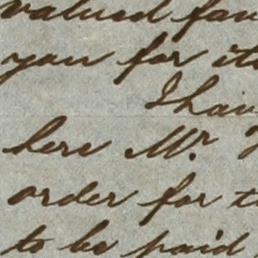 valued fav
you for its
I hav
here Mr.
order for t
to be paid